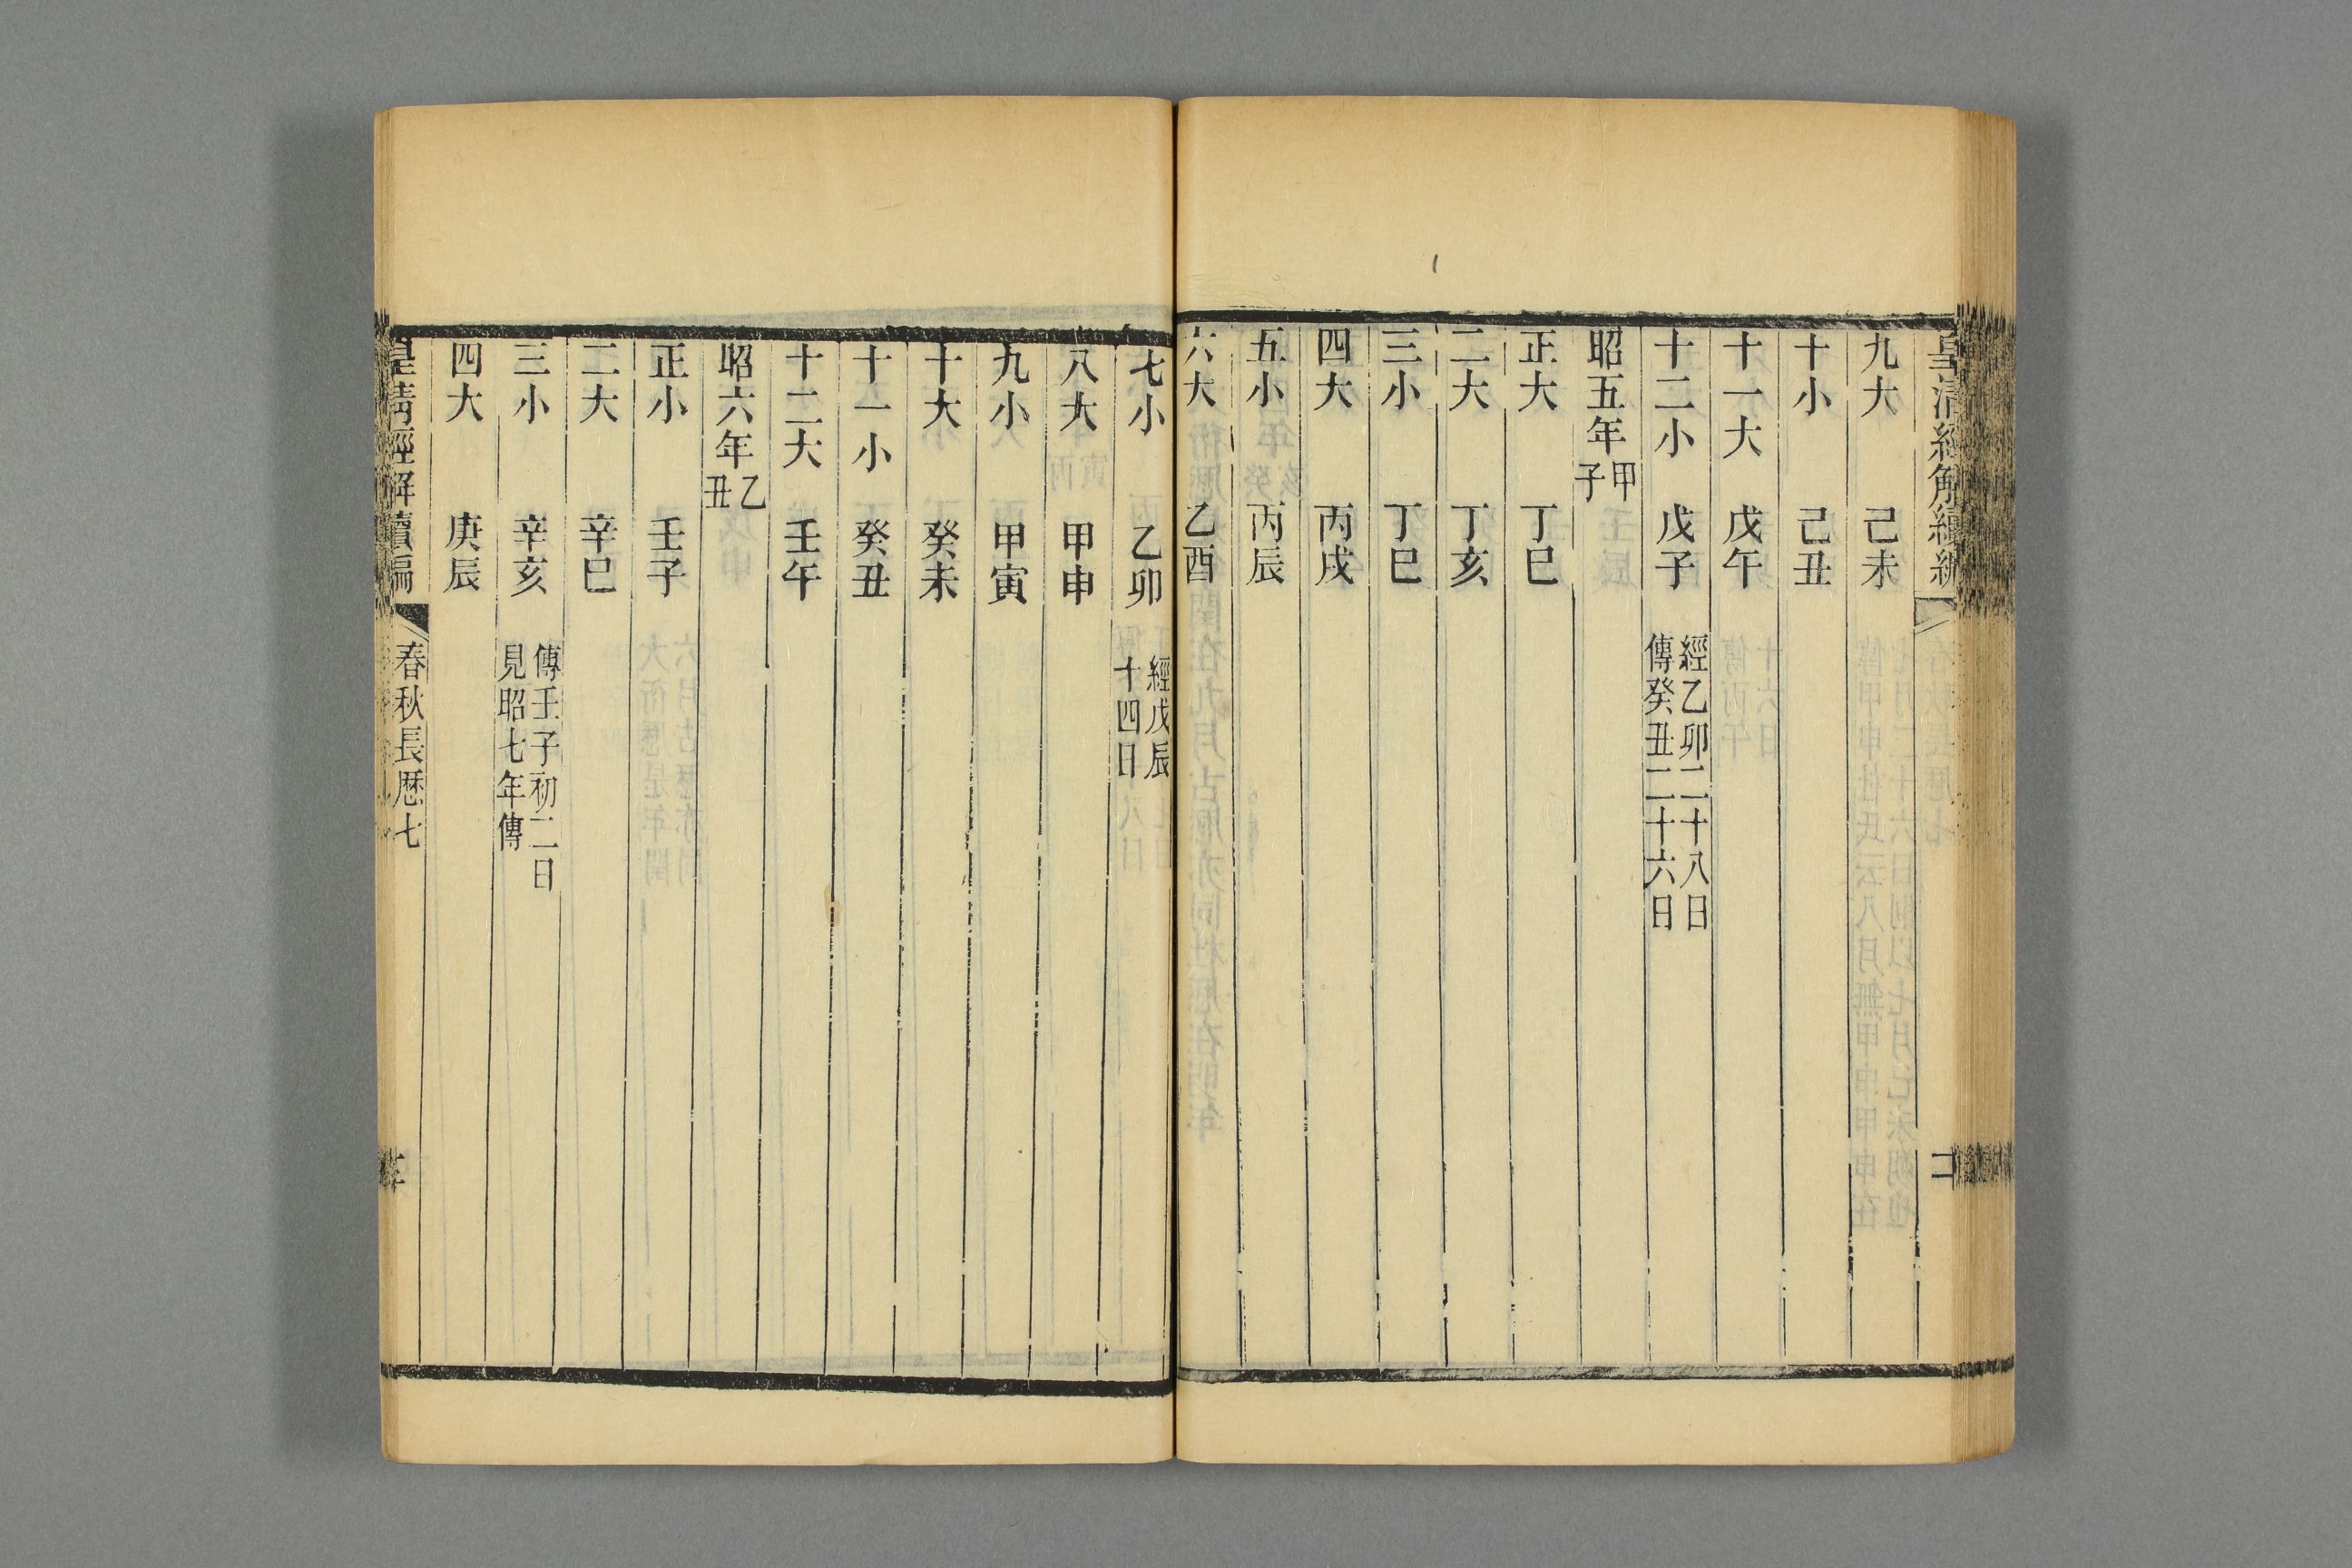 皇清經解續編
九大 己未
十小 己丑
十一大 戊午
十二小 戊子 經乙卯二十八日
傳癸丑二十六日
昭五年甲子
正大 丁巳
二大 丁亥
三小 丁巳
四大 丙戌
五小 丙辰
六大 乙酉
七小 乙卯 經戊辰
十四日
八大 甲申
九小 甲寅
十大 癸未
十一小 癸丑
十二大 壬午
昭六年乙丑
正小 壬子
二大 辛巳
三小 辛亥 傳壬子初二日
見昭七年傳
四大 庚辰
皇清經解續編 春秋長厯七